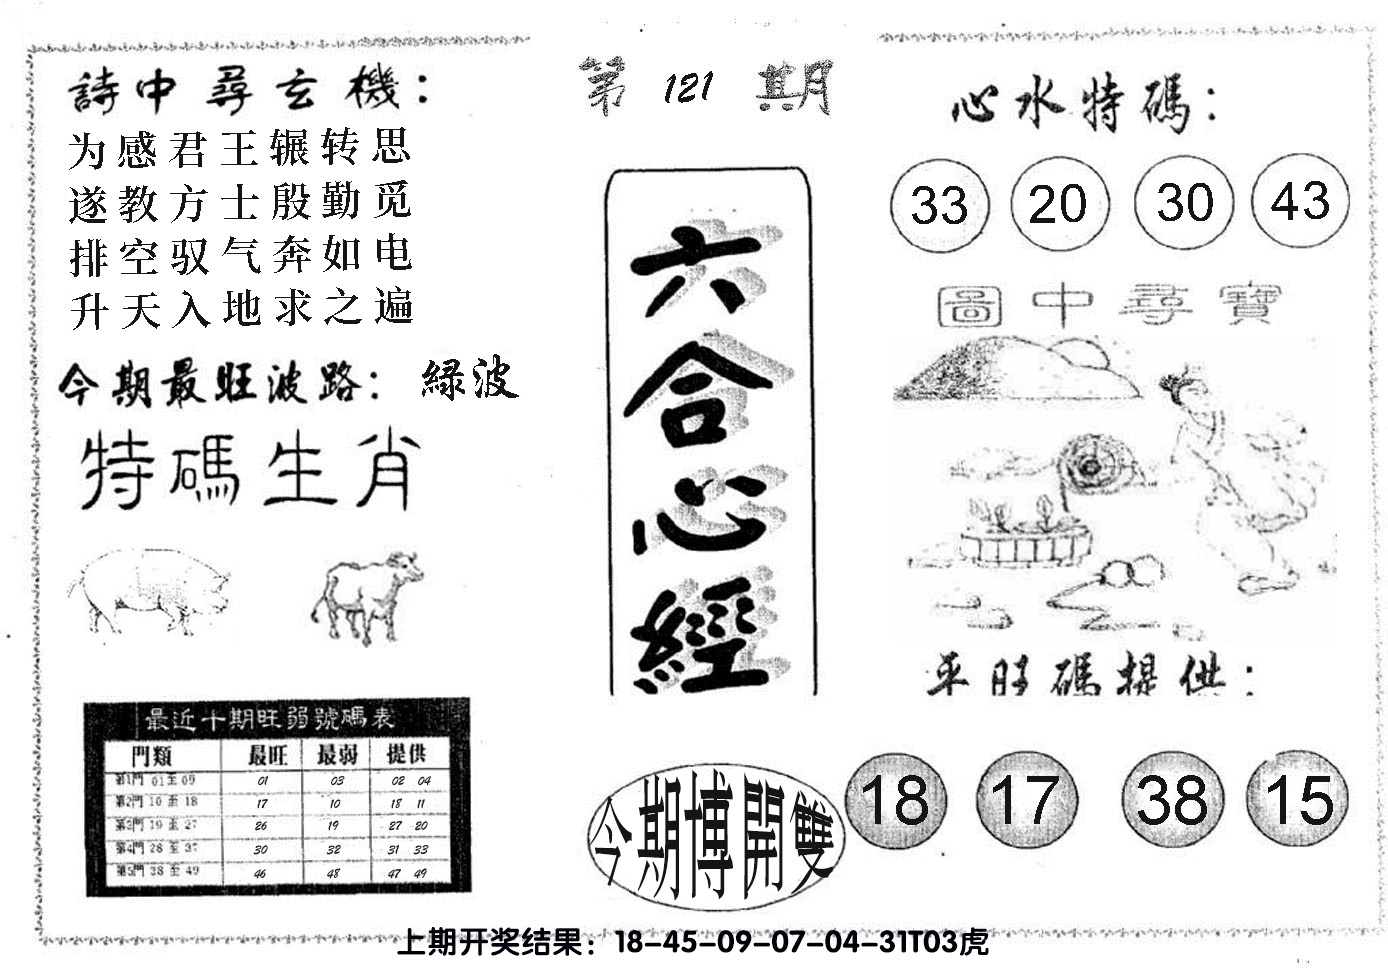 詩中尋玄機：
为感君王辗转思
遂教方士殷勤觅
排空驭气奔如电
升天入地求之遍
今期最旺波路：綠波
特碼生肖
最近十期旺弱號碼表
門類 最旺 最弱 提供
第1門 01至09 01 03 02 04
第2門 10至18 17 10 18 11
第3門 19至27 26 19 27 20
第4門 28至37 30 32 31 33
第5門 38至49 46 48 47 49
第121期
六合心經
今期博開雙
心水特碼：
33 20 30 43
圖中尋寶
平旺碼提供：
18 17 38 15
上期开奖结果：18-45-09-07-04-31T03虎